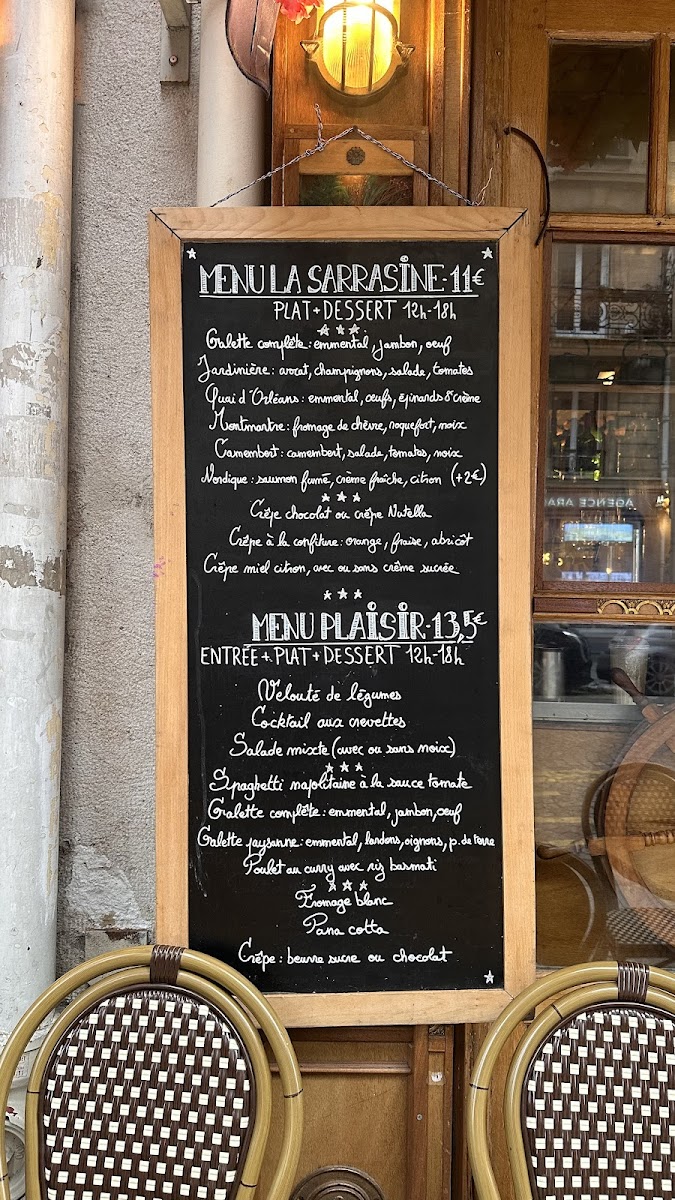 MENU LA SARRASINE - 11€
PLAT + DESSERT 12h-18h
Galette complète : emmental, jambon, oeuf
Jardinière : avocat, champignons, salade, tomates
Quai d'Orléans : emmental, oeufs, épinards & crème
Montmartre : fromage de chèvre, roquefort, noix
Camembert : camembert, salade, tomates, noix
Nordique : saumon fumé, crème fraîche, citron (+2€)
Crêpe chocolat ou crêpe Nutella
Crêpe à la confiture : orange, fraise, abricôt
Crêpe miel citron, avec ou sans crème sucrée
MENU PLAISIR - 13,5€
ENTRÉE + PLAT + DESSERT 12h-18h
Velouté de légumes
Cocktail aux crevettes
Salade mixte (avec ou sans noix)
Spaghetti napolitaine à la sauce tomate
Galette complète : emmental, jambon, oeuf
Galette paysanne : emmental, lardons, oignons, p. de terre
Poulet au curry avec riz basmati
Fromage blanc
Pana cotta
Crêpe : beurre sucre ou chocolat
AGENCE